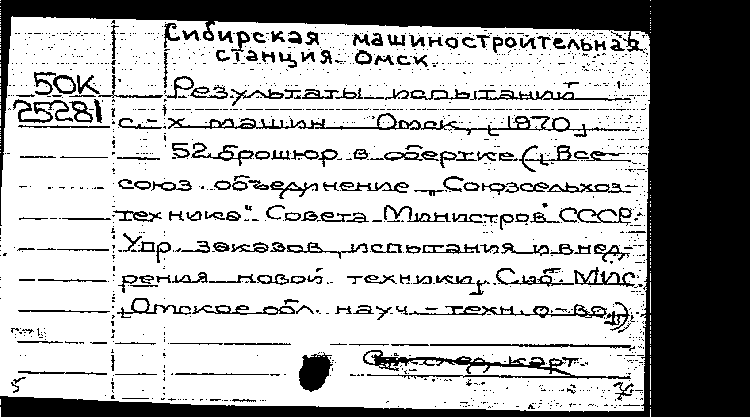 Сибирская машиностроительная
станция. Омск.
50К
25281
Результаты испытаний
с.-х машин. Омск, [1970]
52 брошюр в обертке. ([Все-
союз. объединение „Союзсельхоз-
техника" Совета Министров СССР.
Упр. заказов, испытания и внед-
рения новой техники] Сиб. МИС.
[Омское обл. науч.-техн. о-во])
См. след. карт.